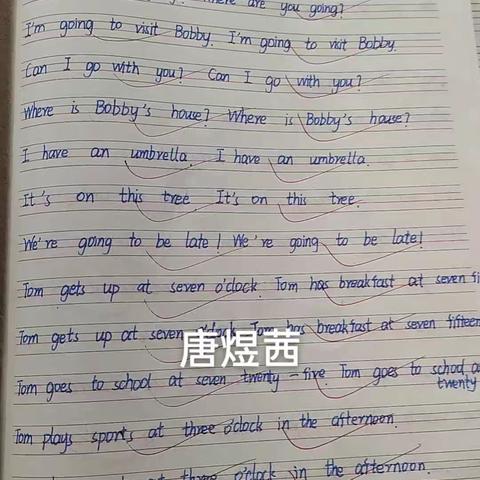 are you going?
I'm going to visit Bobby. I'm going to visit Bobby.
Can I go with you? Can I go with you?
Where is Bobby's house? Where is Bobby's house?
I have an umbrella. I have an umbrella.
It's on this tree. It's on this tree.
We're going to be late! We're going to be late!
Tom gets up at seven o'clock. Tom has breakfast at seven
Tom gets up at seven o'clock. Tom has breakfast at seven fifteen
唐煜茜
Tom goes to school at seven twenty-five. Tom goes to school
twenty
Tom plays sports at three o'clock in the afternoon.
three o'clock in the afternoon.